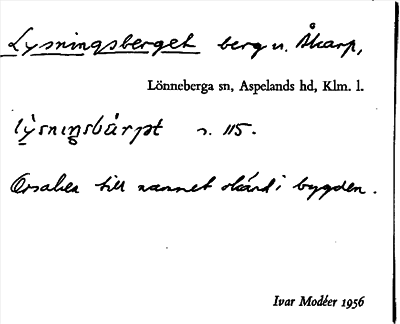 Lysningsberget berg n. Åkarp,
Lönneberga sn, Aspelands hd, Klm. l.
115.
Orsaken till namnet okänd i bygden.
Ivar Modéer 1956